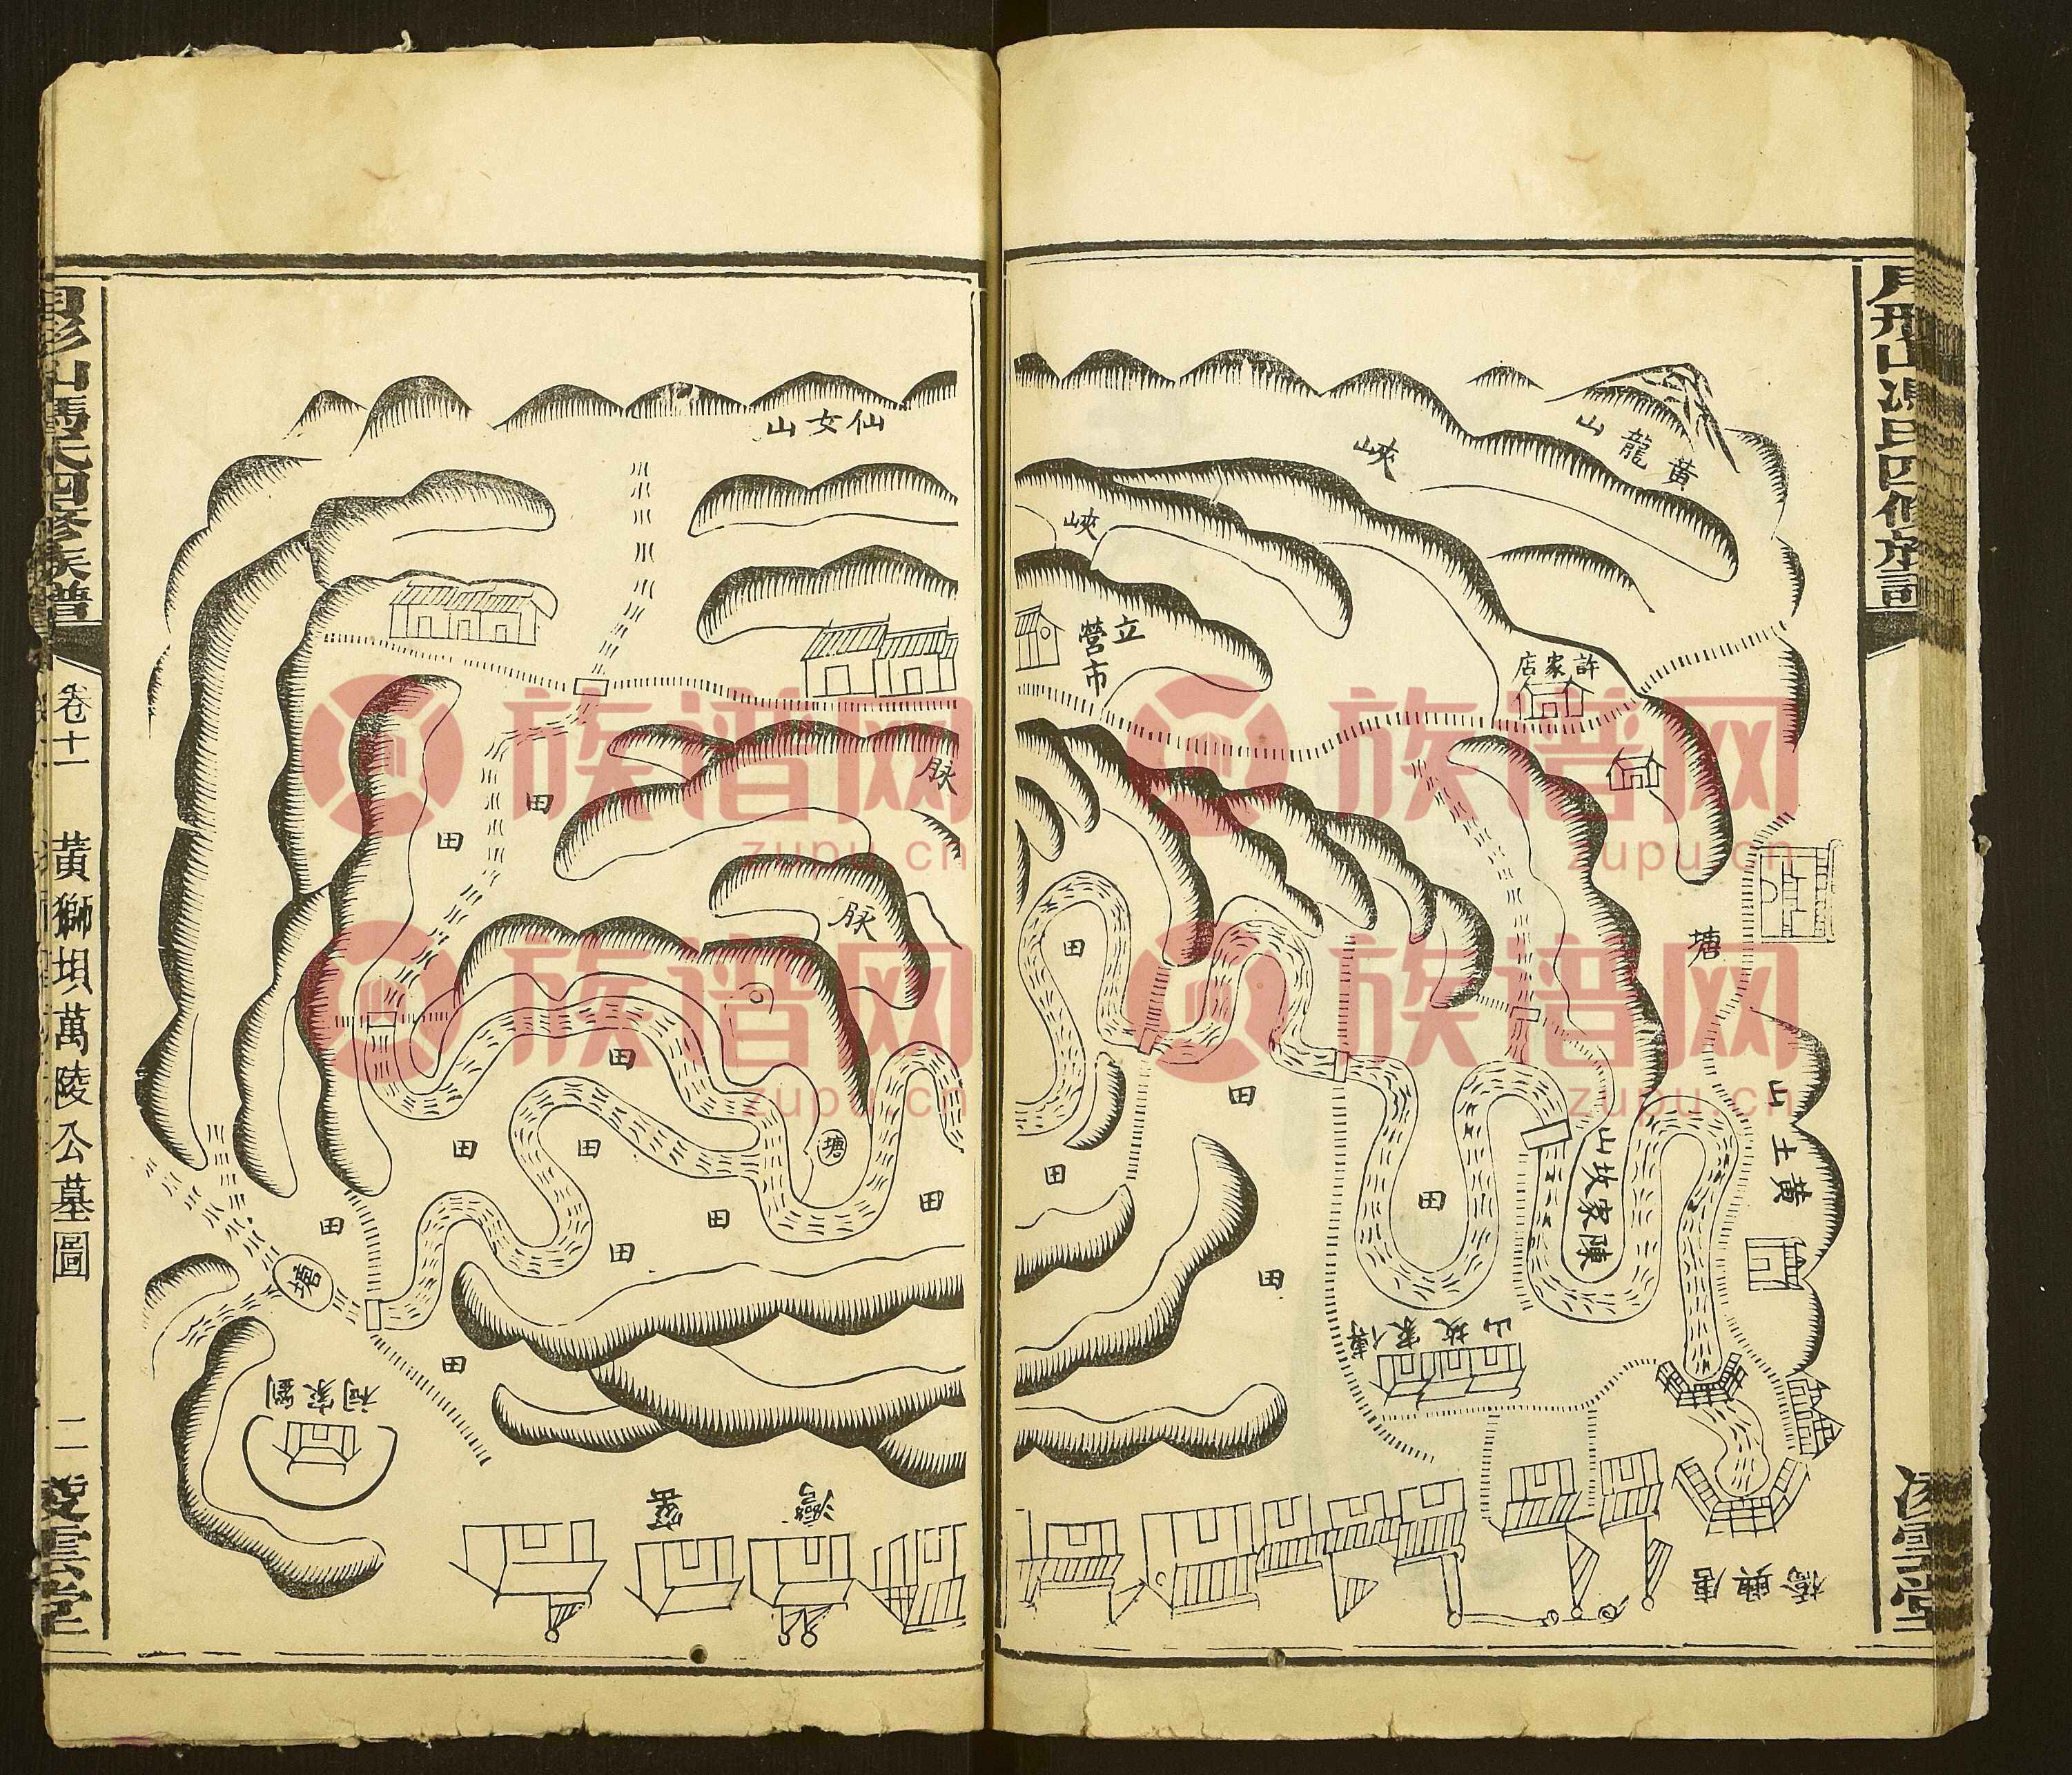 月形山馮氏四修族譜
黃龍山
峽
峽
立營市
許家店
塘
黃土山
陳家坟山
田
田
田
田
田
傅家坟山
唐興橋
凌雲堂
仙女山
脉
脉
田
田
田
塘
田
田
田
田
田
田
塘
田
劉家祠
灣
月形山馮氏四修族譜
卷十一
黃獅垻萬陵公墓圖
二
凌雲堂
族谱网
zupu.cn
族谱网
zupu.cn
族谱网
zupu.cn
族谱网
zupu.cn